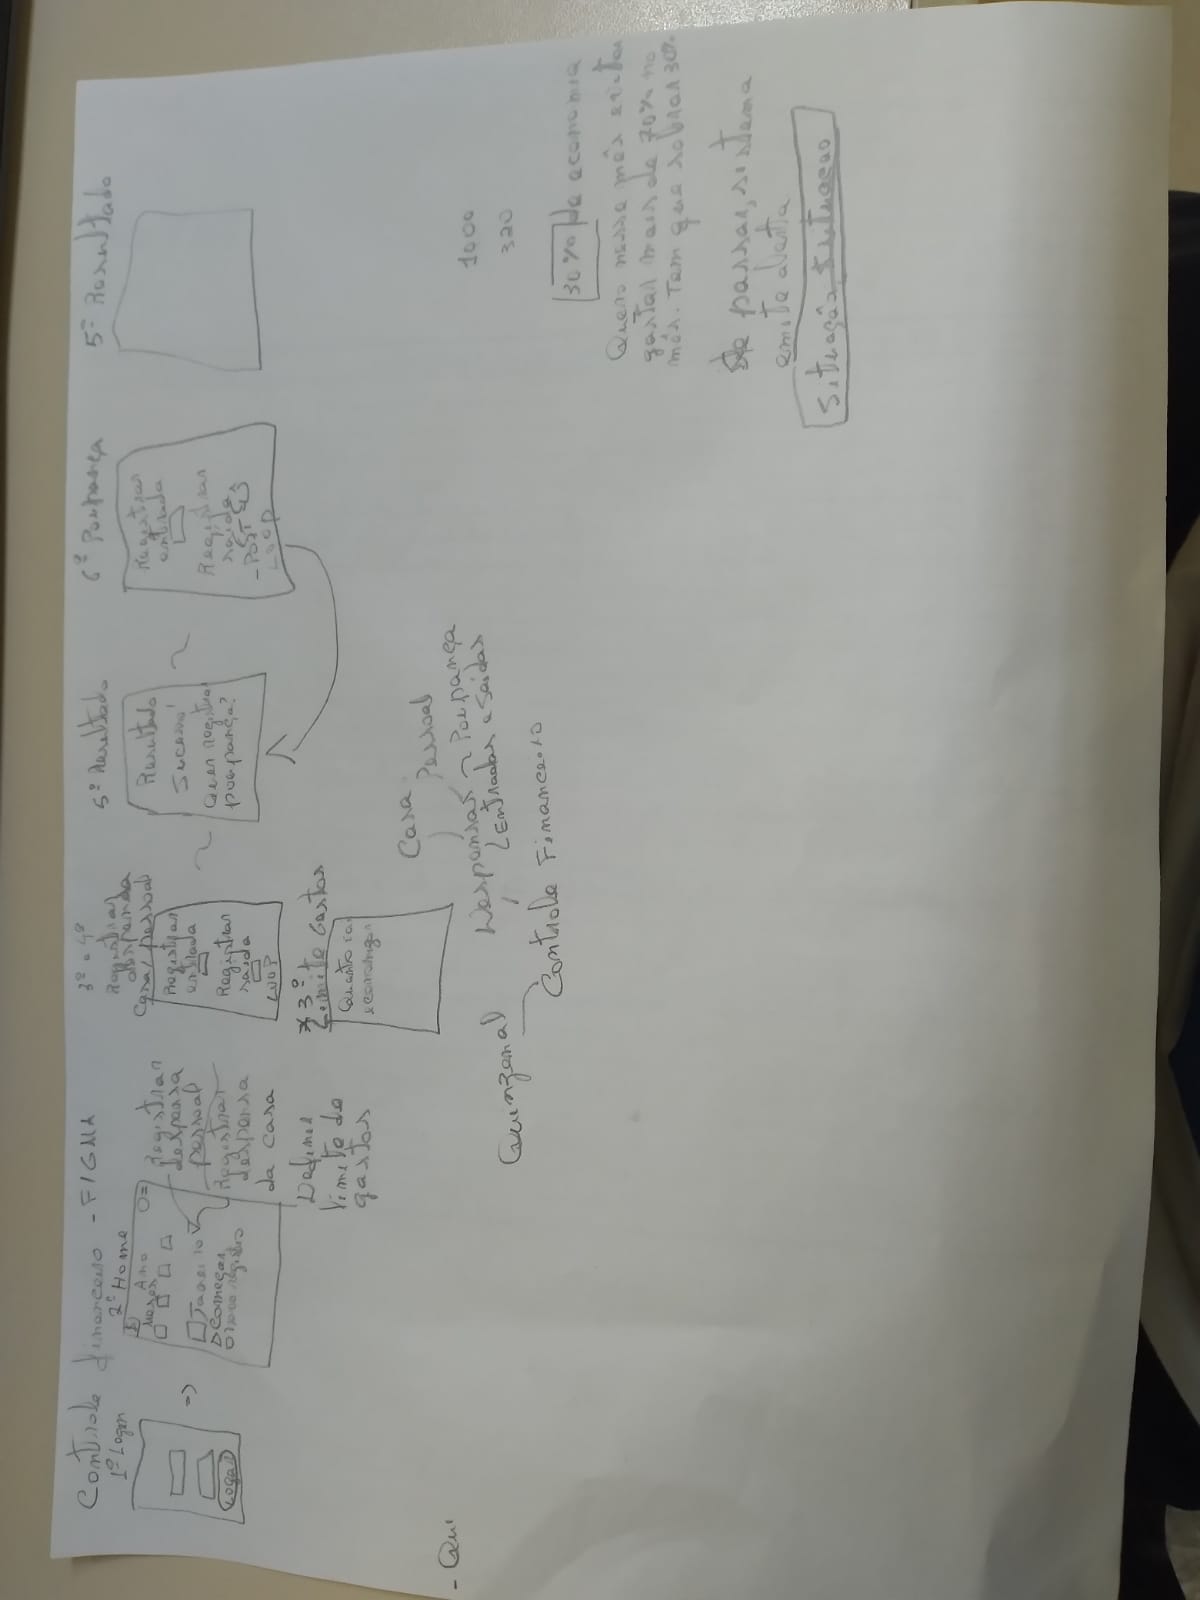 Controle financeiro - FIGMA
1º Logon
Logar
2º Home
Ano
Meses
Janeiro
Começar
registro
Registrar
despesa
pessoal
Registrar
despesa
da casa
Definir
limite de
gastos
3º e 4º
Registrar
despensa
Casa/pessoal
Registrar
entrada
Registrar
saída
LOOP
3º
Limite Gastos
Quanto
economizar
5º Resultado
Resultado
Sucesso!
Quer registrar
poupança?
6º Poupança
Registrar
entrada
Registrar
saída
- POST
LOOP
5º Resultado
- Qui
Casa
Pessoal
Despensas ~ Poupança
Entradas e Saídas
Quinzenal
Controle Financeiro
1000
320
30% de economia
Quero nesse mês evitar
gastar mais de 70% no
mês. Tem que sobrar 30%
Se passar, sistema
emite alerta
Situação